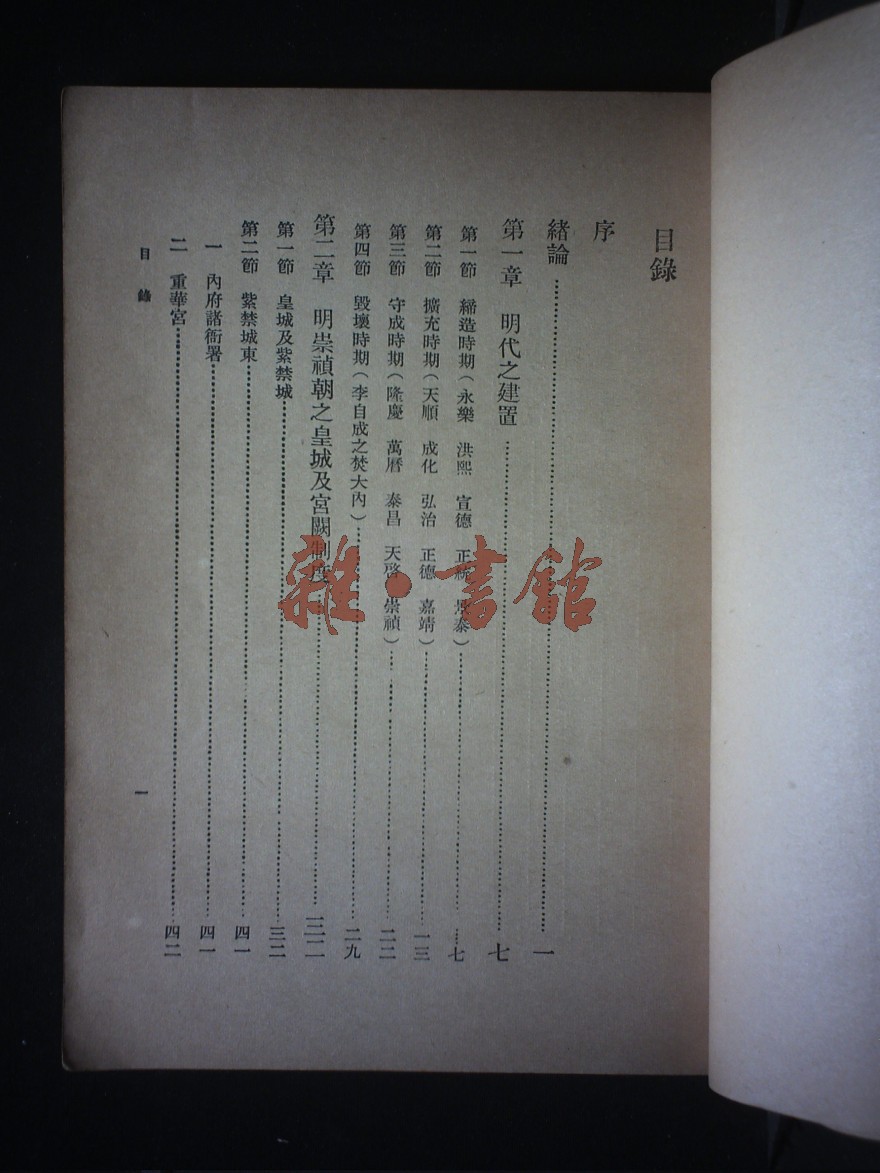 目錄
序
緒論 一
第一章 明代之建置 七
第一節 締造時期（永樂 洪熙 宣德 正統 景泰） 七
第二節 擴充時期（天順 成化 弘治 正德 嘉靖） 一三
第三節 守成時期（隆慶 萬曆 泰昌 天啓 崇禎） 二二
第四節 毀壞時期（李自成之焚大內） 二九
第二章 明崇禎朝之皇城及宮闕制度 三二
第一節 皇城及紫禁城 三二
第二節 紫禁城東 四一
一 內府諸衙署 四一
二 重華宮 四二
目錄
一
雜·書館